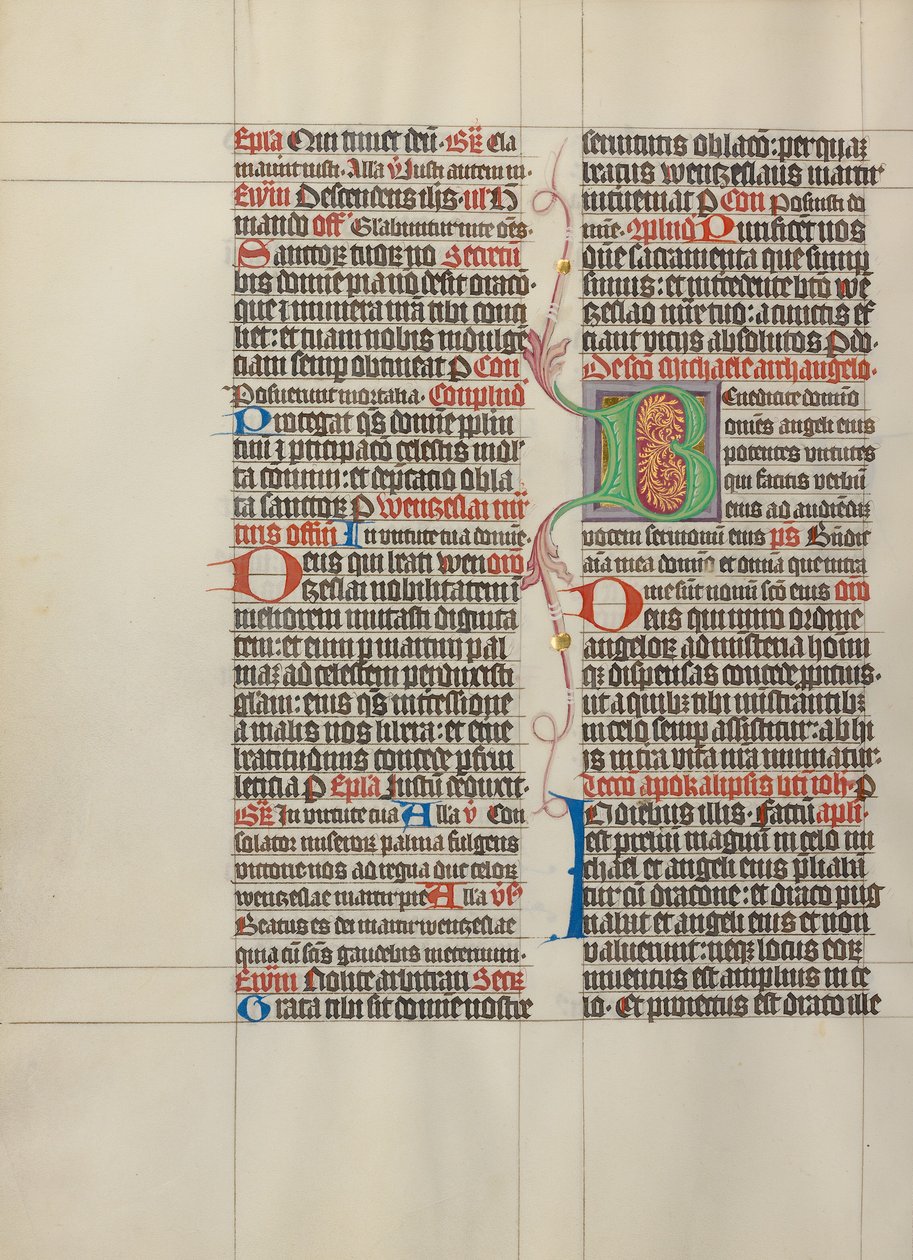 Epła Qui timet deū· Gꝶ Cla
mauerūt iusti· Alła ꝟ Iusti autem in·
Ewm̄ Descendens ihs· vlʼ H
mando offʼ Głabuntur in te oēs·
Sanctoꝝ tuoꝝ no Secretū
bis domīe pia nō desit oracō·
que ⁊ munera nrā tibi conci
liet: et tuam nobis indulgē
ciam semꝑ obtineat P Con
Posuerunt mortalia· Complnd
Protegat qs domīe ppłm
tuū ⁊ ꝑticipacō celestis indłʼ
ta conuiuii: et depcacio obla
ta sanctoꝝ P Wenczeslai mr̄
tiris offm̄ In virtute tua domīe·
Deus qui beatū wen orō
czeslai nobilitatem ī
meliorem mutasti dignita
tem: et eum ꝑ martirii pal
maꝫ ad celestem perduxisti
głam: eius qs intercessione
a malis nos libera: et eius
beatitudinis concede ꝑfrui
leticia P Epła Iustū deduxit·
Gꝶ In virtute tua Alła ꝟ Con
solator miseroꝝ palma fulgens
victorie nos ad regna duc celoꝝ
wenczeslae martir pie Alła ꝟꝰ
Beatus es dei martir wenczeslae
quia cū scīs gaudebis ineternum·
Ewm̄ Nolite arbitrari Secꝶ
Grata tibi sit domīe nostre
seruitutis oblacō: per quaꝫ
beatus wenczeslaus martir
inueniat P Con Posuisti do
mīe· Cꝰplnd Purificet nos
dñe sacramenta que sump
simus: et intercedente btō we
czeslao mr̄e tuo: a cunctis ef
ficiant vicijs absolutos P do·
De sctō Michaele archangelo·
Benedicite domīo
omēs angeli eius
potentes virtutes
qui facitis verbū
eius ad audiendā
vocem sermonū eius ps̄ Bn̄dic
aīa mea domīo et omīa que intra
me sūt nomī scō eius orō
Deus qui miro ordine
angeloꝝ ad misteria homī
qꝫ dispensas concede ꝓpicius·
ut a quibꝫ tibi mīstrantibꝫ
in celo semꝑ assistitur: ab hi
js in tr̄a vita nr̄a muniatur·
Leccō apokalipsis bti ioh· P
In diebus illis· Factū apłi·
est preliū magnū in celo mi
chael et angeli eius pliabā
tur cū dracone: et draco pug
nabat et angeli eius et non
valuerunt: neqꝫ locus eoꝝ
inuentus est amplius in ce
lo· Et proiectus est draco ille